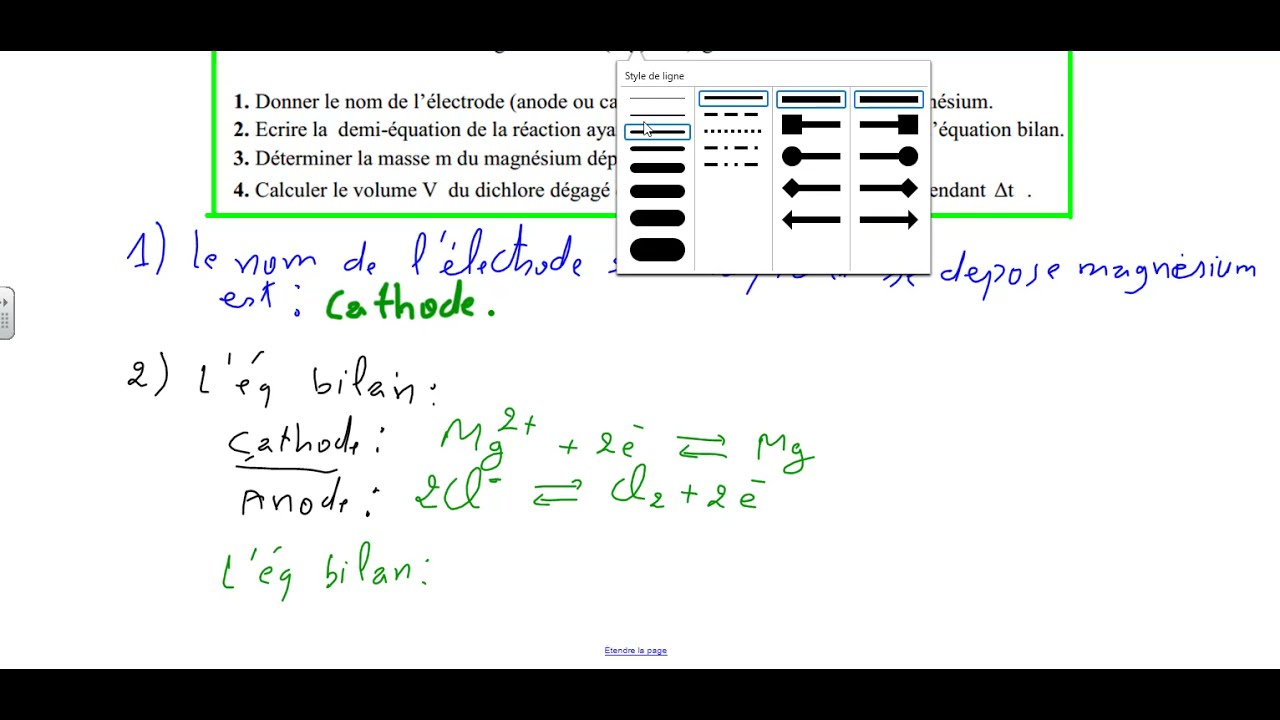 Style de ligne
1. Donner le nom de l'électrode (anode ou ca nésium.
2. Ecrire la demi-équation de la réaction aya l'équation bilan.
3. Déterminer la masse m du magnésium dép
4. Calculer le volume V du dichlore dégagé endant Δt .
1) le nom de l'électrode se depose magnésium
est : Cathode.
2) L'éq bilan :
Cathode : Mg²⁺ + 2e⁻ ⇌ Mg
Anode : 2Cl⁻ ⇌ Cl₂ + 2e⁻
L'éq bilan :
Etendre la page